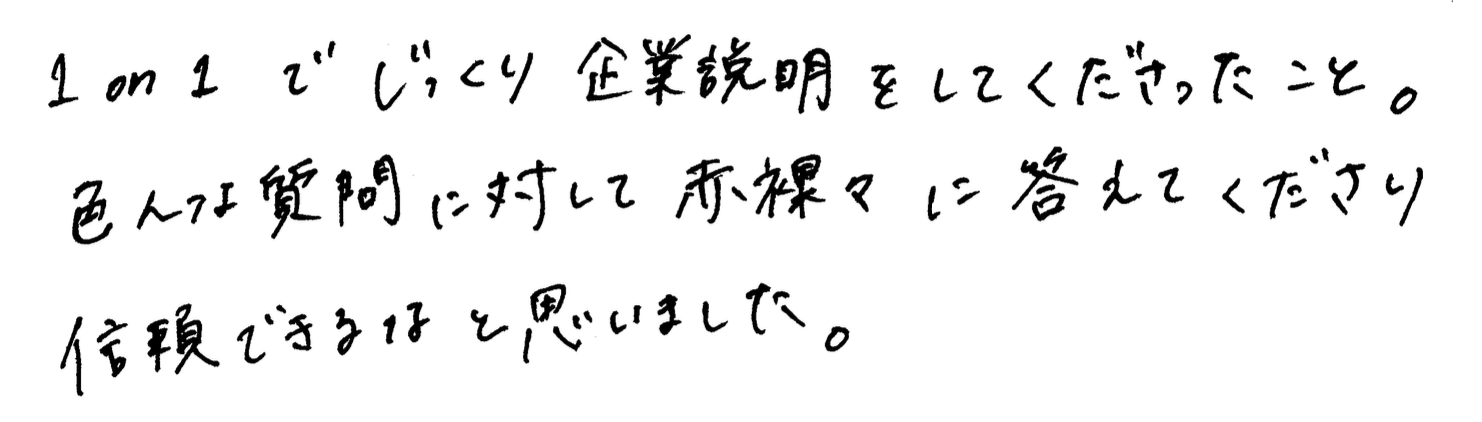 1 on 1 でじっくり企業説明をしてくださったこと。
色んな質問に対して赤裸々に答えてくださり
信頼できるなと思いました。